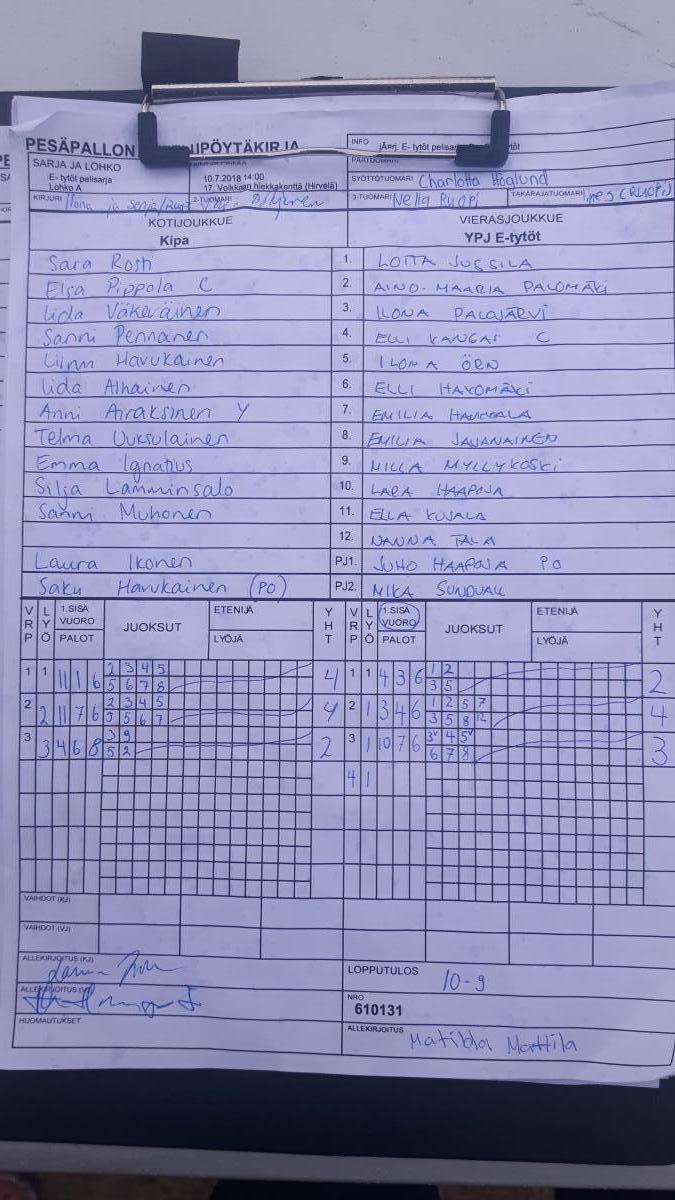 PESÄPALLON
UIPÖYTÄKIRJA
INFO
E- tytöt
SARJA JA LOHKO
E- tytöt pelisarja
Lohko A
10.7.2018 14:00
17. Volkkan hiekkakenttä (Hirvelä)
SYÖTTÖTUOMARI Charlotta Höglund
KIRJURI Ilona ja
2-TUOMARI
3-TUOMARI Nella Ruopi
TAKARAJATUOMARI Ines (RUOPI)
KOTIJOUKKUE VIERASJOUKKUE
Kipa YPJ E-tytöt
Sara Rosti 1. LOTTA JUSSILA
Elsa Pippola C 2. AINO-MAARIA PALOMÄKI
Iida Väkeväinen 3. ILONA PALOJÄRVI
Sanni Pennanen 4. ELLI KANGAS C
Liinu Havukainen 5. ILONA ÖRN
Iida Alhainen 6. ELLI HAKOMÄKI
Anni Airaksinen Y 7. EMILIA
Telma Uuksulainen 8. EMILIA JAVANAINEN
Emma Ignatius 9. MILLA MYLLYKOSKI
Silja Lamminsalo 10. LARA HAAPOJA
Sanni Muhonen 11. ELLA KUJALA
12. NANNA TALA
Laura Ikonen PJ1. JUHO HAAPOJA PO
Saku Havukainen (PO) PJ2. MIKA SUNDVALL
VRP LYÖ 1.SISÄ VUORO PALOT JUOKSUT ETENIJÄ LYÖJÄ YHT VRP LYÖ 1.SISÄ VUORO PALOT JUOKSUT ETENIJÄ LYÖJÄ YHT
1 1 11 1 6 2 3 4 5 4 1 1 4 3 6 1 2 2
5 6 7 8 3 5
2 2 11 7 6 2 3 4 5 4 2 1 3 4 6 1 2 5 7 4
5 6 7 3 5 8 12
3 3 4 6 8 3 9 2 3 1 10 7 6 3v 4 5v 3
5 2 6 7 8
4 1
VAIHDOT (KJ)
VAIHDOT (VJ)
ALLEKIRJOITUS (KJ)
LOPPUTULOS 10-9
NRO
610131
HUOMAUTUKSET
ALLEKIRJOITUS Matilda Mattila